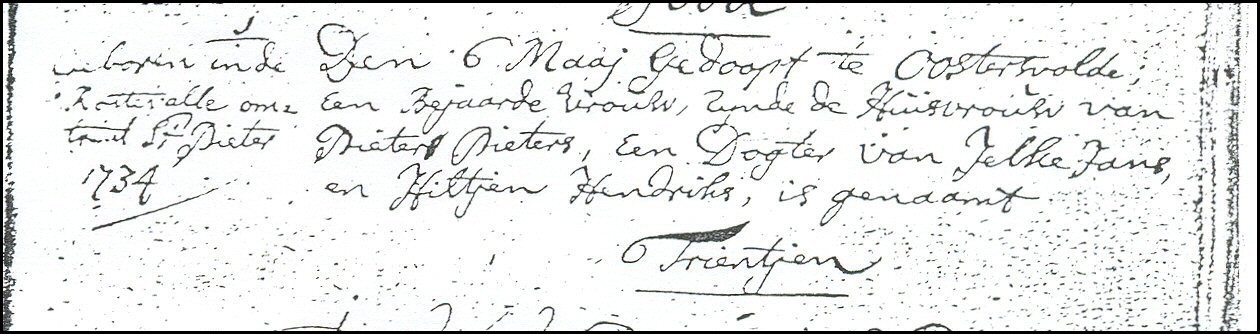 geboren in de
Den 6 Maaj Gedoopt te Oosterwolde,
Een Bejaarde Vrouw, zynde de Huisvrouw van
Pieter Pieters, Een Dogter van Jelke Jans,
en Hiltjen Hendriks, is genaamt
Trientjen
om=
trent St Pieter
1734